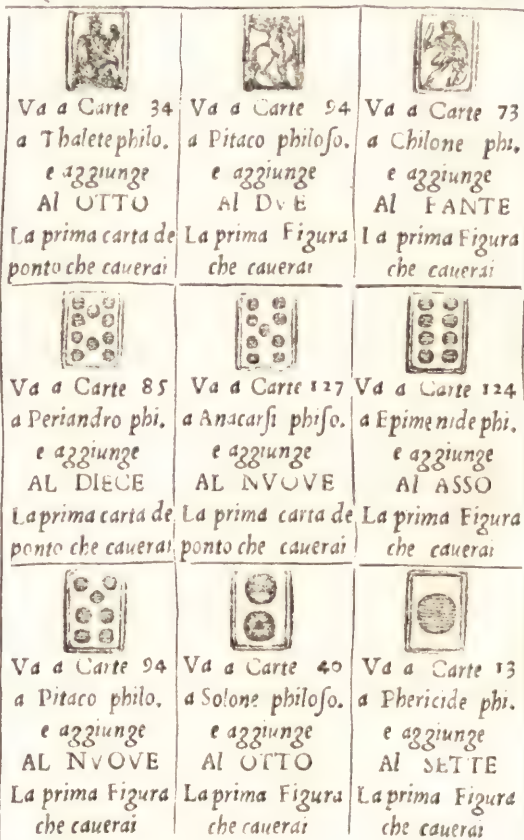 Va a Carte 34
a Thalete philo.
e aggiunge
Al OTTO
La prima carta de
ponto che cauerai
Va a Carte 94
a Pitaco philoſo.
e aggiunge
Al DVE
La prima Figura
che cauerai
Va a Carte 73
a Chilone phi.
e aggiunge
Al FANTE
La prima Figura
che cauerai
Va a Carte 85
a Periandro phi.
e aggiunge
AL DIECE
La prima carta de
ponto che cauerai
Va a Carte 127
a Anacarſi phiſo.
e aggiunge
AL NVOVE
La prima carta de
ponto che cauerai
Va a Carte 124
a Epimenide phi.
e aggiunge
Al ASSO
La prima Figura
che cauerai
Va a Carte 94
a Pitaco philo.
e aggiunge
AL NVOVE
La prima Figura
che cauerai
Va a Carte 40
a Solone philoſo.
e aggiunge
Al OTTO
La prima Figura
che cauerai
Va a Carte 13
a Phericide phi.
e aggiunge
Al SETTE
La prima Figura
che cauerai